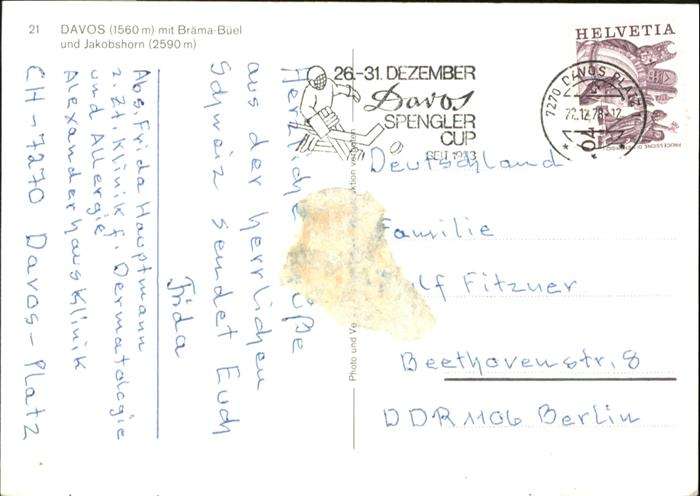 21 DAVOS (1560 m) mit Bräma-Büel
und Jakobshorn (2590 m)
Herzliche
aus der herrlichen
Schweiz sendet Euch
Frida
Abs. Frida Hauptmann
z. Zt. Klinik f. Dermatologie
und Allergie
Alexanderhausklinik
CH-7270 Davos-Platz
Photo und
26.-31. DEZEMBER
Davos
SPENGLER
CUP
SEIT 1923
7270 DAVOS PLATZ
22.12.78-12
HELVETIA
Deutschland
Familie
Fitzner
Beethovenstr. 8
DDR 1106 Berlin